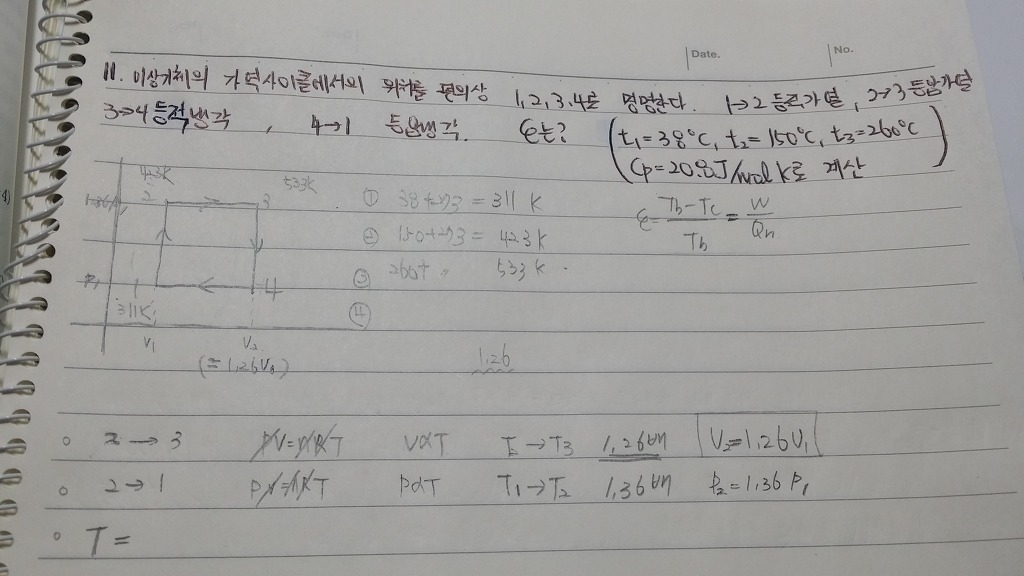 Date.
No.
11. 이상기체의 가역사이클에서의 위치를 편의상 1, 2, 3, 4로 명명한다. 1→2 등적가열, 2→3 등압가열
3→4 등적냉각, 4→1 등압냉각. e는? (t₁=38℃, t₂=150℃, t₃=260℃
Cp=20.8J/mol K로 계산)
423K 533K ① 38+273 = 311 K e = (Th-Tc)/Th = W/Qh
2 3
② 150+273 = 423K
③ 260+ 〃 533K.
P₁ 1 4
311K ④
V₁ V₂
(=1.26V₁) 1.26
○ 2 → 3 PV=nRT V∝T T₂→T₃ 1.26배 V₂=1.26V₁
○ 2 → 1 PV=nRT P∝T T₁→T₂ 1.36배 P₂=1.36P₁
○ T =